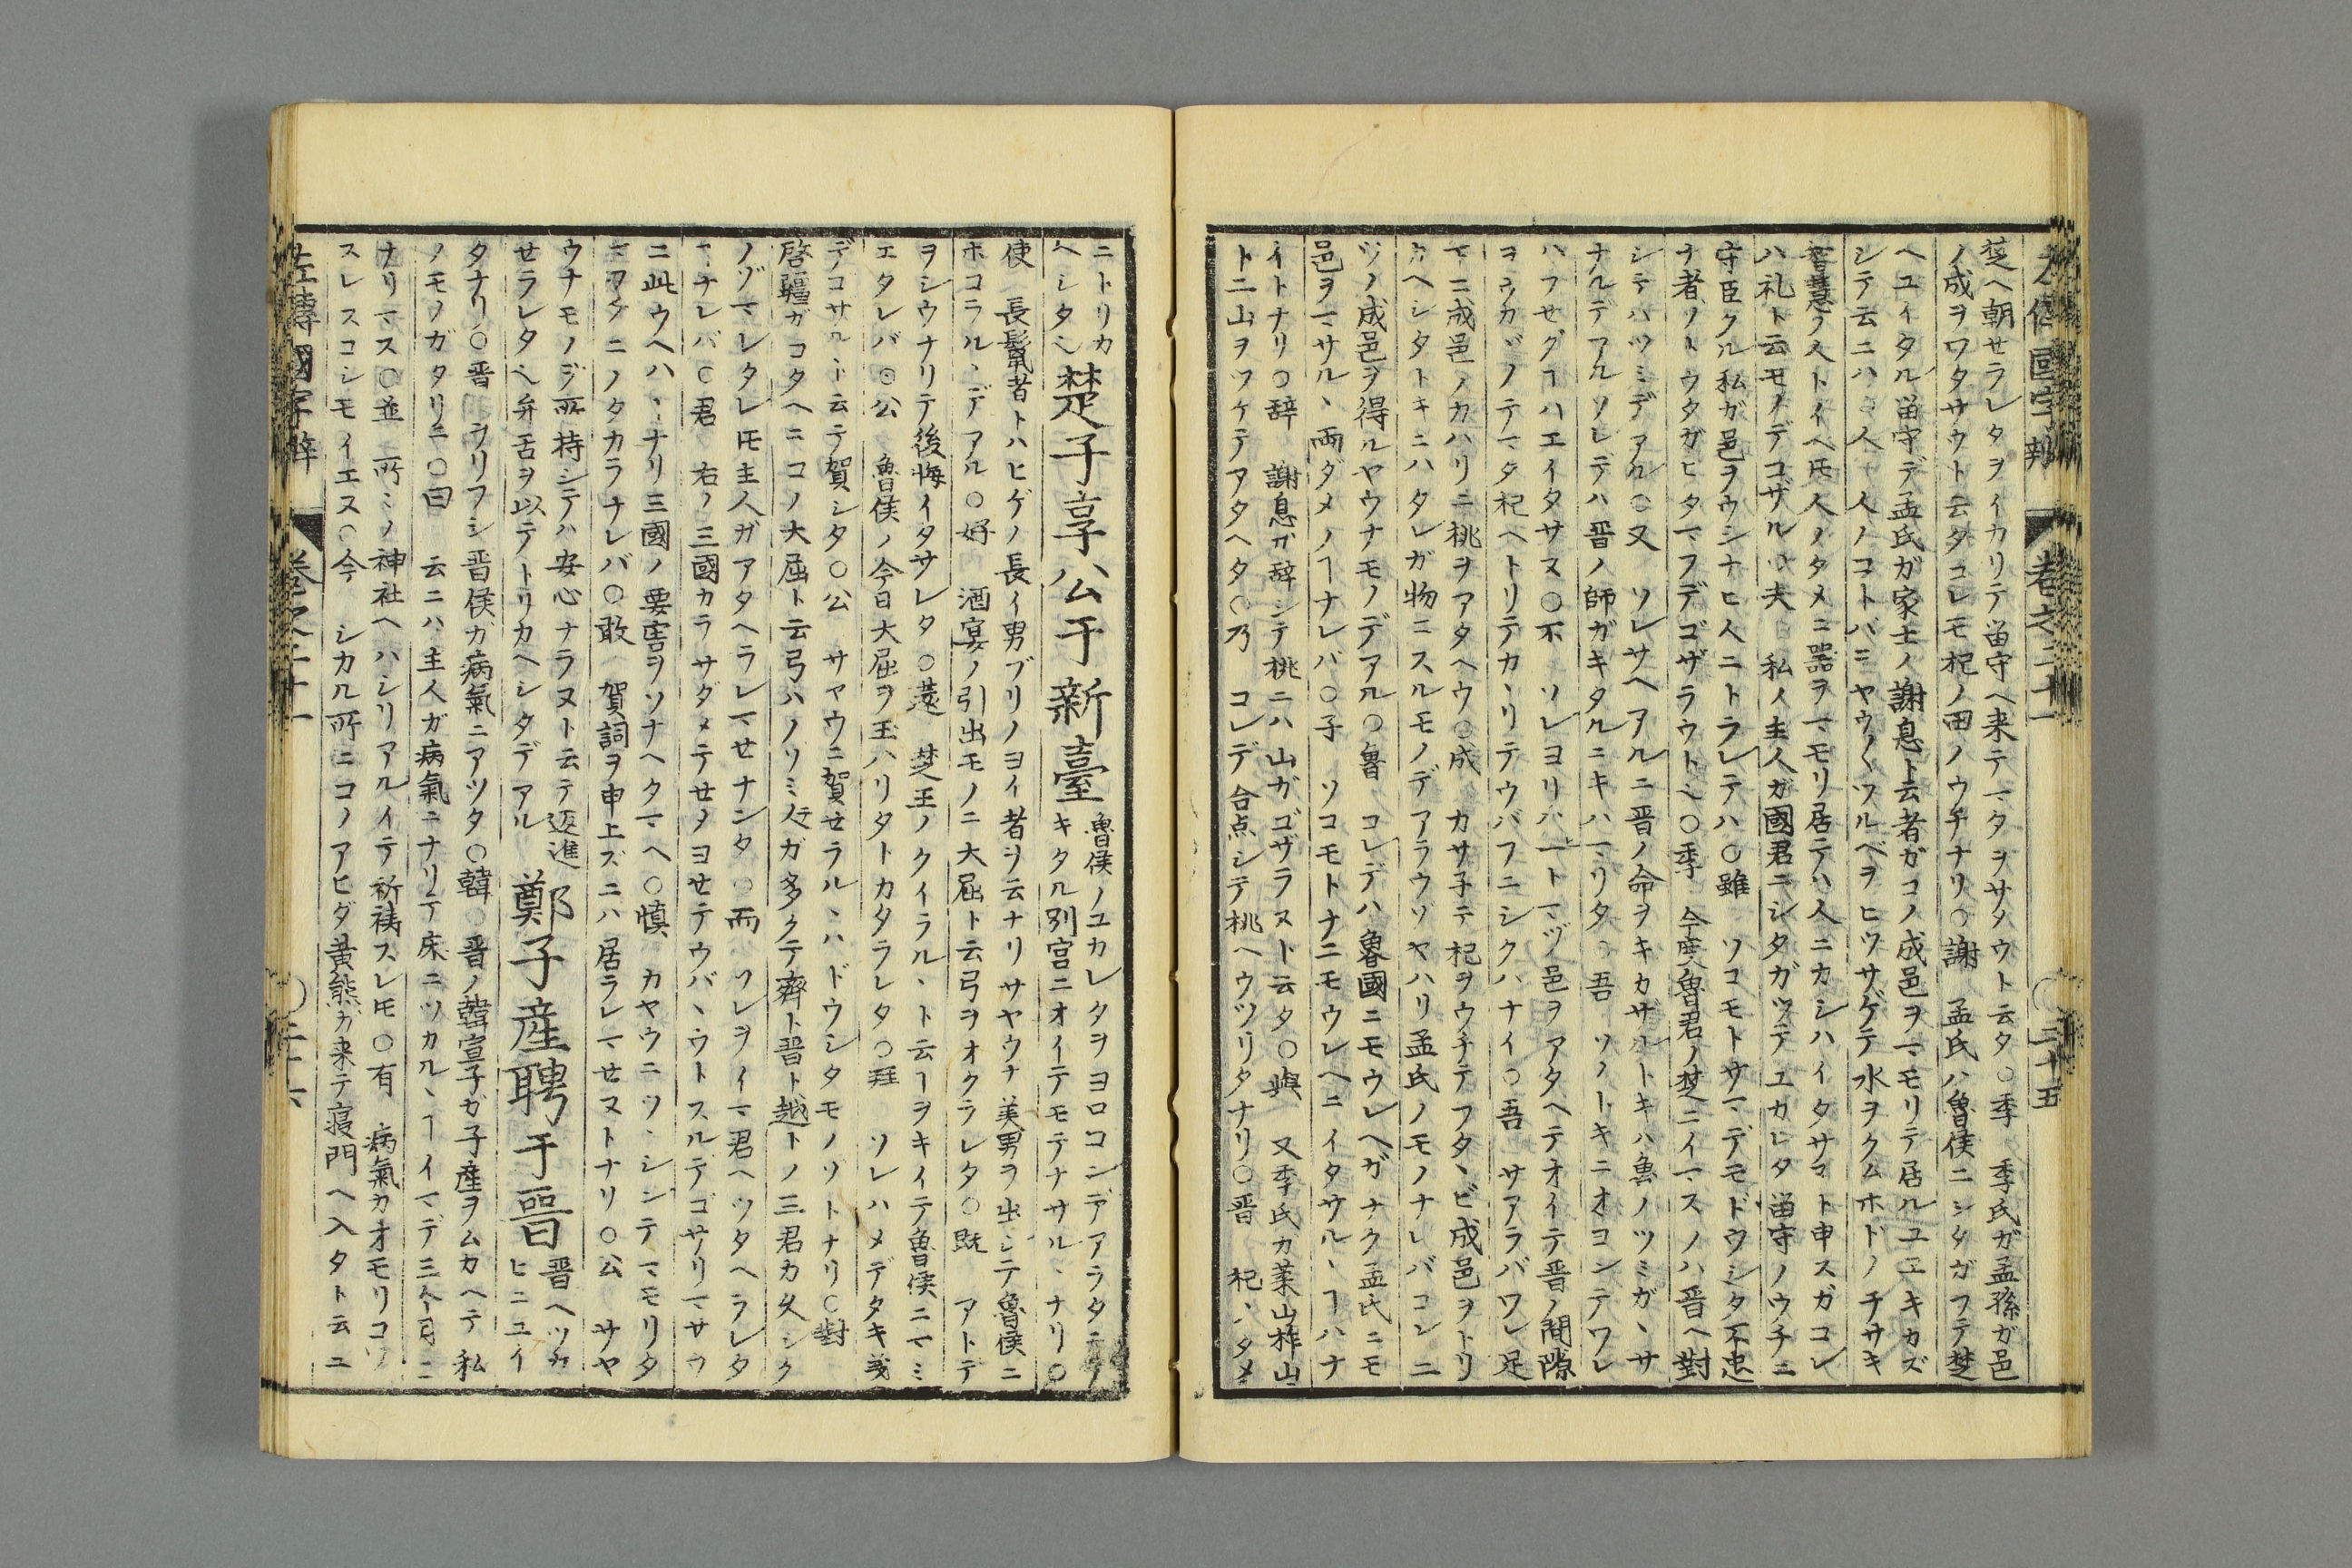 左傳國字辨 巻之二十一 〇二十五
楚ヘ朝セラレタヲイカリテ畄守ヘ来テマタヲサメウト云タ○季 季氏ガ孟孫ガ邑
ノ成ヲワタサウト云タコレモ杞ノ田ノウチナリ○謝 孟氏ハ魯侯ニシタガフテ楚
ヘユイタル畄守デ孟氏ガ家士ノ謝息ト云者ガコノ成邑ヲマモリテ居ルユエキカズ
シテ云ニハ○人 人ノコトバニヤウ〱ツルベヲヒツサゲテ水ヲクムホドノチサキ
智慧ノ人トイヘ𪜈人ノタメニ器ヲマモリ居テハ人ニカシハイタサヌト申スガコレ
ハ礼ト云モノデコザル○夫 私ノ主人ガ國君ニシタガツテユカレタ畄守ノウチニ
守臣タル私ガ邑ヲウシナヒ人ニトラレテハ○雖 ソコモトサマデモドウシタ不忠
ナ者ソトウタガヒタマフデゴザラウト〆○季 今度魯君ノ楚ニイマスノハ晋ヘ對
シテハツミデアル○又 ソレサヘアルニ晋ノ命ヲキカザルトキハ魚ノツミガヽサ
ナルデアルソレデハ晋ノ師ガキタルニキハマリタ○吾 ソノトキニオヨンデワレ
ハフセグヿハエイタサヌ○不 ソレヨリハ一トマヅ邑ヲアタヘテオイテ晋ノ間隙
ヲウカヾノテマタ杞ヘトリテカヽリテウバフニシクハナイ○吾 サアラバワレ足
マニ成邑ノカハリニ桃ヲアタヘウ○成 カサ子テ杞ヲウチテフタヽビ成邑ヲトリ
カヘシタトキニハタレガ物ニスルモノデアラウゾヤハリ孟氏ノモノナレバコレ二
ツノ成邑ヲ得ルヤウナモノデアル○魯 コレデハ魯國ニモウレヘガナク孟氏ニモ
邑ヲマサルヽ両ダメノヿナレバ○子 ソコモトナニモウレヘニイタサルヽヿハナ
イトナリ○辞 謝息ガ辞シテ桃ニハ山ガゴザラヌト云タ○與 又季氏カ莱山柞山
ト二山ヲツケテアタヘタ○乃 コレデ合点シテ桃ヘウツリタナリ○晋 杞ヽタメ
ニトリカ
ヘシタ〆
楚子享公于新臺
魯侯ノユカレタヲヨロコンデアラタテノ
キタル別宮ニオイテモテナサルヽナリ○
使 長鬣者トハヒゲノ長イ男ブリノヨイ者ヲ云ナリサヤウナ美男ヲ出シテ魯侯ニ
ホコラルヽデアル○好 酒宴ノ引出モノニ大屈ト云弓ヲオクラレタ○既 アトデ
ヲシウナリテ後悔イタサレタ○薳 楚王ノクイラルヽト云ヿヲキイテ魯侯ニマミ
エタレバ○公 魯侯ノ今日大屈ヲ玉ハリタトカタラレタ○拜 ソレハメデタキ義
デコサルト云テ賀シタ○公 サヤウニ賀セラルヽハドウシタモノソトナリ○對
啓疆ガコタヘニコノ大屈ト云弓ハノソミ人ガ多クテ齊ト晋ト越トノ三君カ久シク
ノゾマレタレ𪜈主人ガアタヘラレマセナンタ○而 ソレヲイマ君ヘツタヘラレタ
マナレバ○君 右ノ三國カラサダメテセメヨセテウバヽウトスルテゴサリマサウ
ニ此ウヘハヽナリ三國ノ要害ヲソナヘタマヘ○慎 カヤウニツヽシンテマモリタ
マフタニノタカラナレバ○敢 賀詞ヲ申上ズニハ居ラレマセヌトナリ○公 サヤ
ウナモノヲ所持シテハ安心ナラヌト云テ返進
セラレタ〆弁舌ヲ以テトリカヘシタデアル
鄭子産聘于晋
晋ヘツカ
ヒニユイ
タナリ○晋 ヲリフシ晋侯ガ病氣ニアツタ○韓 晋ノ韓宣子ガ子産ヲムカヘテ私
ノモノガタリニ○曰 云ニハ主人ガ病氣ニナリテ床ニツカルヽヿイマデ三ケ月ニ
ナリマス○並 所ミノ神社ヘハシリアルイテ祈祷スレ𪜈○有 病氣カオモリコソ
スレスコシモイエヌ○今 シカル所ニコノアヒダ黄熊ガ来テ寝門ヘ入タト云ユ
左傳國字辨 巻之二十一 〇二十六